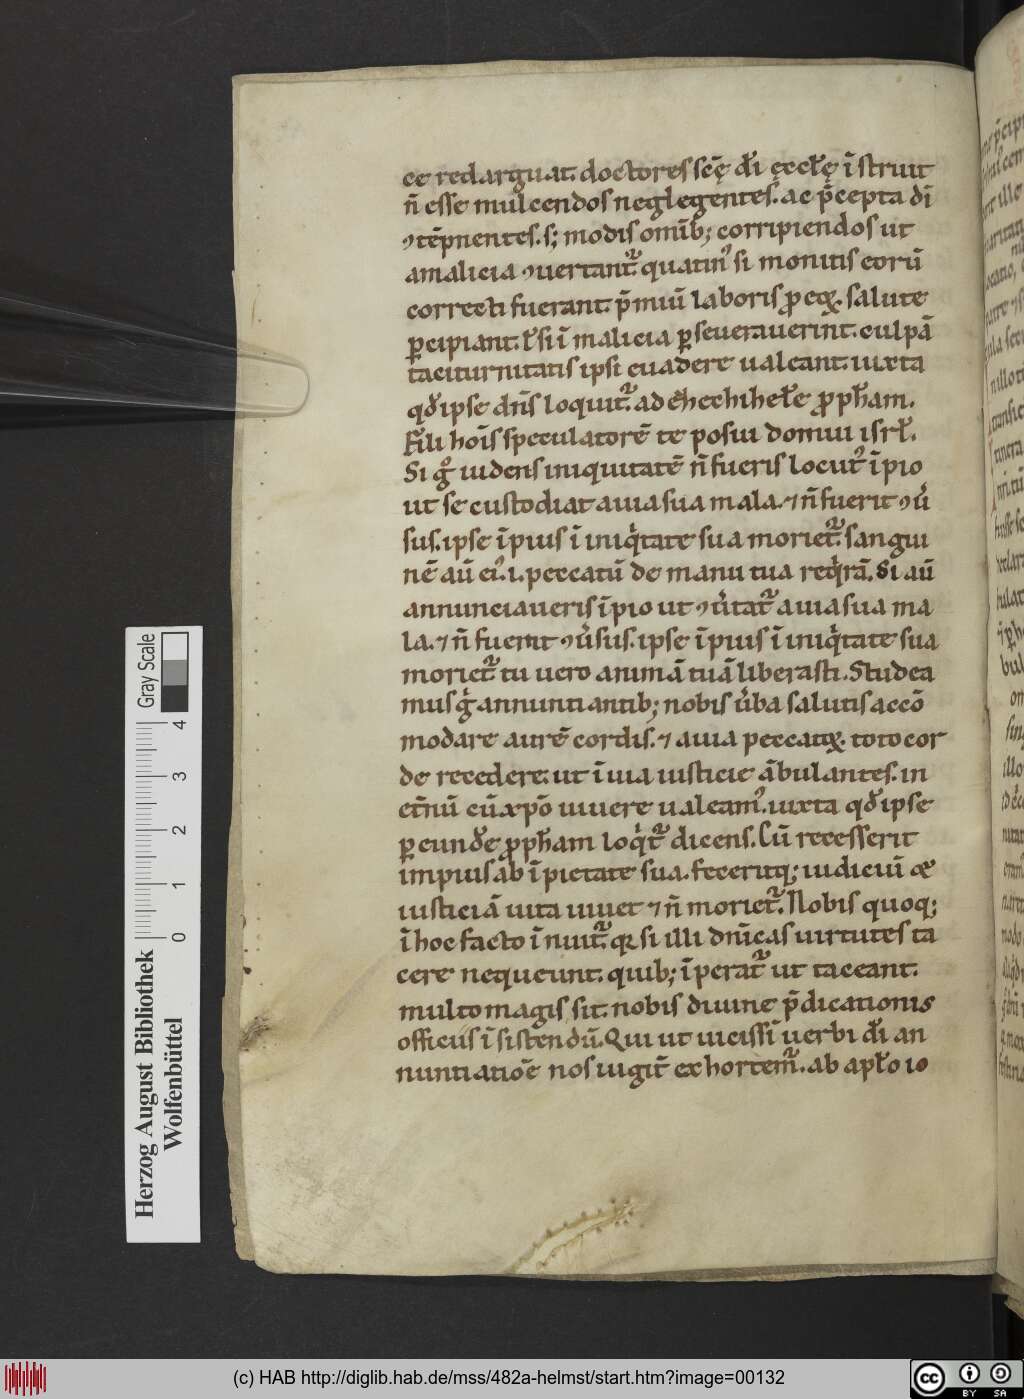 ce redarguat. doctores scę̄ dī ęcclę̄ īstruit
n̄ esse mulcendos neglegentes. ac p̄cepta dī
ꝯtēpnentes. s; modis omīb; corripiendos ut
a malicia ꝯuertant᷑ quatin᾽ si monitis eorū
correcti fuerant. p̄miū laboris ꝓ eoꝝ salute
ꝑcipiant. ł si ī malicia ꝑseuerauerint. culpā
taciturnitatis ipsi euadere ualeant. iuxta
qđ ipse dn̄s loquit᷑. ad Ehechihełe ꝓpħam.
Fili hoīs speculatorē te posui domui isrł.
Si gͦ uidens iniquitatē n̄ fueris locut᾽ īpio
ut se custodiat a uia sua mala. ⁊ n̄ fuerit ꝯu̾
sus. ipse īpius ī iniqͥtate sua moriet᷑ sangui
nē aū ei᾽. i. peccatū de manu tua reqͥrā. Si aū
annunciaueris īpio ut ꝯu̾tat᷑ a uia sua ma
la. ⁊ n̄ fuerit ꝯu̾sus. ipse īpius ī iniqͥtate sua
moriet᷑ tu uero animā tuā liberasti. Studea
mus gͥ annuntiantib; nobis u̾ba salutis accō
modare aurē cordis. ⁊ a uia peccatoꝝ. toto cor
de recedere. ut ī uia iusticie ābulantes. in
et̄nū cū xpō uiuere ualeam᾽. iuxta qđ ipse
ꝑ eunđe ꝓpħam loqͥt᷑ dicens. Cū recesserit
impius ab īpietate sua. feceritq; iudiciuī &
iusticiā uita uiuet ⁊ n̄ moriet᷑. Nobis quoq;
ī hoc facto īnuit᷑. qꝛ si illi dnīcas uirtutes ta
cere nequeunt. quib; īperat᷑ ut taceant.
multo magis sit. nobis diuine p̄dicationis
officiis īsistendū. Qui ut uicissī uerbi dī an
nuntiatiōe nos iugit̄ exhortem᷑. ab apło io
Herzog August Bibliothek
Wolfenbüttel
Gray Scale
0 1 2 3 4
(c) HAB http://diglib.hab.de/mss/482a-helmst/start.htm?image=00132
cc BY SA